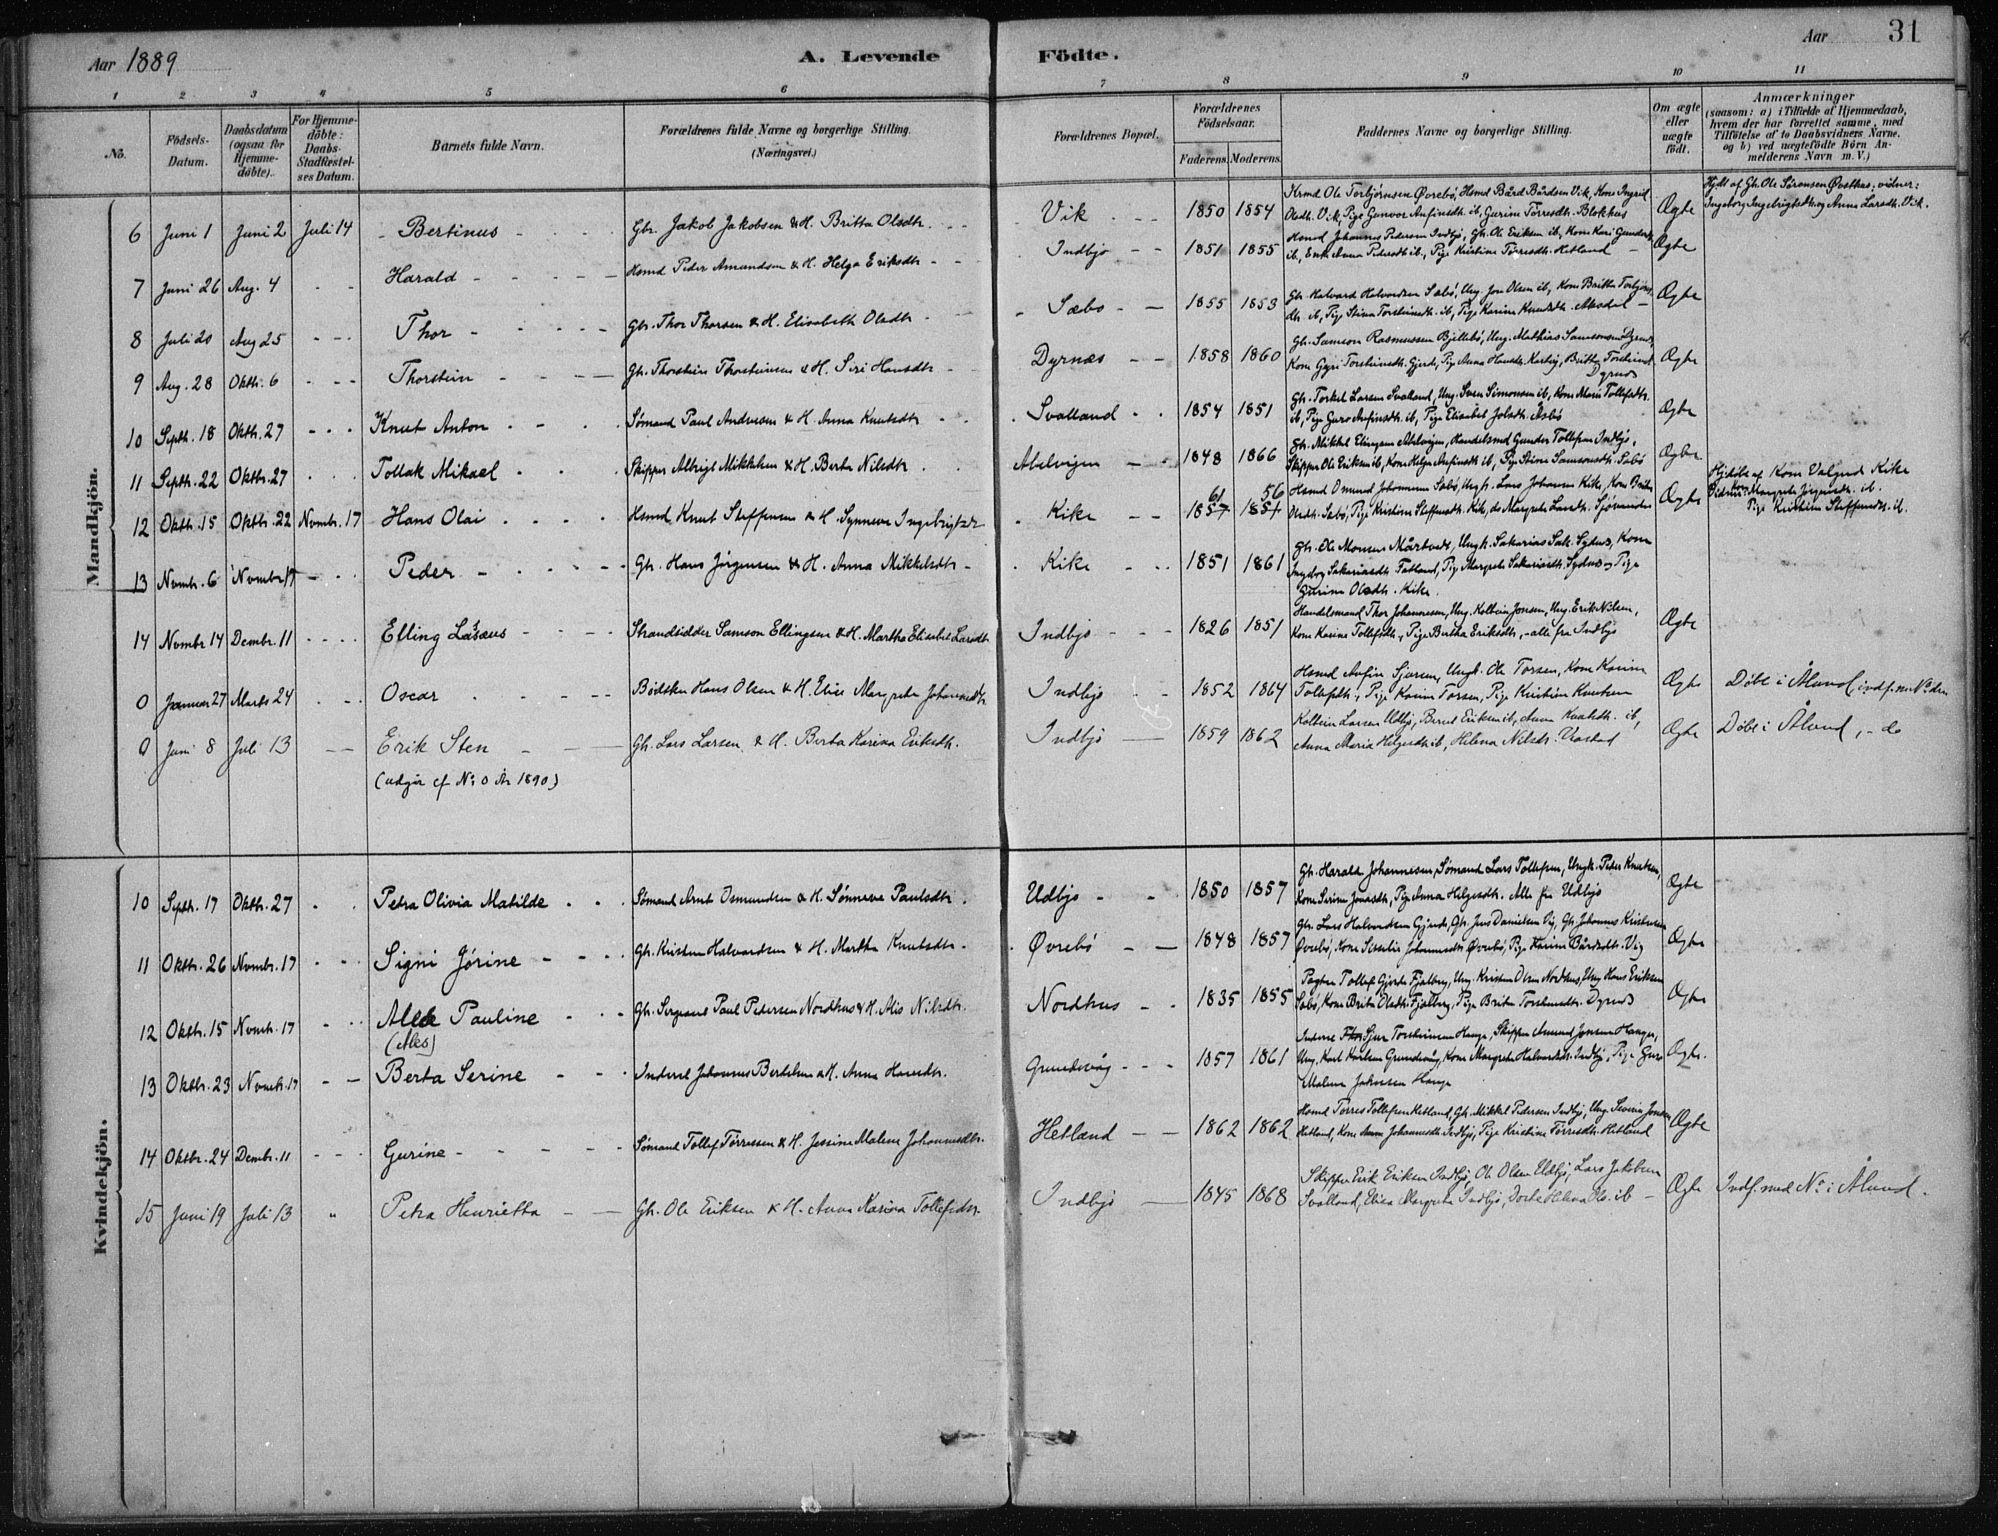 Aar 1889 A. Levende Födte. Aar 31
1 2 3 4 5 6 7 8 9 10 11
No. Födsels-Datum. Daabsdatum (ogsaa for Hjemme-döbte). For Hjemme-döbte: Daabs-Stadfæstel-ses Datum. Barnets fulde Navn. Forældrenes fulde Navne og borgerlige Stilling. (Næringsvei.) Forældrenes Bopæl. Forældrenes Födselsaar. Faderens. Moderens. Faddernes Navne og borgerlige Stilling. Om ægte eller uægte födt. Anmærkninger (saasom: a) i Tilfælde af Hjemmedaab, hvem der har forrettet samme, med Tilföielse af to Daabsvidners Navne, og b) ved uægtefödte Börn An-melderens Navn m. V.)
Mandkjön.
6 Juni 1 Juni 2 Juli 14 Bertinus Gbr. Jakob Jakobsen & H. Britta Olsdtr. Vik 1850 1854 Krmd Ole Torbjørnsen Øvrebø, Hsmd Bård Bårdsen Vik, Kone Ingrid Olsdtr. Vik, Pige Gunvor Anfinsdtr. ib, Gurine Tørresdtr. Blokhus Ægte Hjdt af Gbr. Ole Sørensen Øvsthus; vidner: Ingeborg Ingebrigtsdtr og Anna Larsdtr. Vik.
7 Juni 26 Aug. 4 Harald Hsmd Peder Amundsen & H. Helga Eriksdtr Indbjo 1851 1855 Hsmd Johannes Pedersen Indbjo, Gbr. Ole Eriksen ib, Kone Kari Gundersdtr ib, Enke Anna Pedersdtr ib., Pige Kristine Tørresdtr. Hetland Ægte
8 Juli 20 Aug 25 Thor Gbr. Thor Thorsen & H. Elisabeth Olsdtr Sæbo 1855 1853 Gbr. Halvard Halvardsen Sæbø, Ung. Jon Olsen ib, Kone Britta Torbjørnsdtr ib, Pige Stina Torsteinsdtr. ib, Pige Karine Knudsdtr. Aksdal Ægte
9 Aug. 28 Oktbr. 6 Thorstein Gbr. Thorstein Thorsteinsen & H. Siri Hansdtr Dyrnæs 1858 1860 Gbr. Samson Rasmussen Bjellebø, Ung. Mathias Samsonsen Dyrnæs, Kone Gyri Torsteinsdtr. Gjerde, Pige Anna Hansdtr. Britta Torsteinsdtr. Dyrnes Ægte
10 Septbr. 18 Oktbr. 27 Knut Anton Sømand Paul Andersen & H. Anna Knutsdtr Svalland 1854 1851 Gbr. Torkel Larsen Svalland, Ung. Sven Simonsen ib, Kone Mari Tollefsdtr. ib, Pige Guro Anfinsdtr ib, Pige Elisabet Ægte
11 Septbr. 22 Oktbr. 27 Tollak Mikael Skipper Albrigt Mikkelsen & H. Berta Nilsdtr Abelvigen 1848 1866 Gbr. Mikkel Elingsen Abelvigen, Handelsmd Gunder Tollefsen Indbjo, Skipper Ole Eriksen ib, Kone Helga Anfinsdtr ib, Pige Stine Samsonsdtr. Sæbø Ægte
12 Oktbr. 15 Oktbr. 22 Novmbr. 17 Hans Olai Hsmd Knut Steffensen & H. Synneva Ingebrigtsdtr Kike 61 1857 56 1851 Hsmd Omund Johannesen Sæbø, Ungk. Lars Johansen Kike, Kone Brita Olsdtr. Sæbø, Pige Kristine Steffensdtr. Kike, do Margrete Larsdtr. Ægte Hjdöbt af Kone Valgerd Kike Vidner: Kone Margrete Jørgensdtr. ib. Pige Kristine Steffensdtr. ib.
13 Novmbr. 6 Novmbr 17 Peder Gbr. Hans Jørgensen & H. Anna Mikkelsdtr Kike 1851 1861 Gbr. Ole Monsen Mårtvedt, Ungk. Sakarias Sak. Sydnæs, Kone Ingeborg Sakariasdtr. Fatland, Pig Margrete Sakariasdtr. Sydnes, Pige Gurine Olsdtr. Kike. Ægte
14 Novmbr 14 Dembr. 11 Elling Lasæus Strandsidder Samson Ellingsen & H. Martha Elisabet Larsdtr Indbjo 1826 1851 Handelsmand Thor Johannesen, Ung. Kolbein Jonsen, Ung. Erik Nilsen, Kone Karine Tollefsdtr., Pige Bertha Eriksdtr., - alle fra Indbjo Ægte
0 Januar 27 Marts 24 Oscar Bødsker Hans Olsen & H. Elise Margrete Johannesdtr Indbjo 1852 1864 Hsmd Anfin Sjursen, Ungk. Ole Torsen, Kone Karine Tollefsdtr., Pige Karine Torsen, Pige Kristine Knutsen Ægte Döbt i Ålund, indf. m. No. der
0 Juni 8 Juli 13 Erik Sten Gbr. Lars Larsen & H. Berta Karina Eriksdtr. Indbjo 1859 1862 Kolbein Larsen Udbjo, Bernt Eriksen ib, Anna Knutsdtr. ib, Anna Maria Helgesdtr ib, Helena Nilsdtr. Ægte Döbt i Ålund, - do
(udgår cf No: 0 År 1890)
Kvindekjön.
10 Septbr. 17 Oktbr. 27 Petra Olivia Matilde Sømand Arnt Osmundsen & H. Sønneva Paulsdtr. Udbjo 1850 1857 Gbr. Harald Johannesen, Sømand Lars Tollefsen, Ungk. Peder Knutsen, Kone Serine Jonasdtr, Pige Anna Helgesdtr. Alle fra Udbjo Ægte
11 Oktbr. 26 Novmbr. 17 Signi Jórine Gbr. Kristen Halvardsen & H. Martha Knutsdtr Øvrebö 1848 1857 Gbr. Lars Halvardsen Gjerde, Gbr. Jens Danielsen Vig, Gbr. Johannes Kristensen Øvrebø, Kone Sisselie Johannesdtr. Øvrebø, Pige Karine Bårdsdtr. Vig Ægte
12 Oktbr. 15 Novmbr. 17 Allede Pauline (Ales) Gbr. Sergeant Paul Pedersen Nordhus & H. Alis Nilsdtr. Nordhus 1835 1855 Pagter Tollef Gjerde Fjelberg, Ung. Kristen Olsen Nordhus, Ung Hans Eriksen Sæbø, Kone Brita Olsdtr. Fjelberg, Pige Brita Torsteinsdtr. Dyrnes Ægte
13 Oktbr. 23 Novmbr. 17 Berta Serine Inderst Johannes Bertelsen & H. Anna Hansdtr. Grundevåg 1857 1861 Inderst Sjur Torsteinsen Hauge, Skipper Amund Jonsen Hauge, Ung. Karl Karlsen Grundevåg, Kone Margrete Halvardsdtr. Indbjo, Pige Guro Malene Jakobsen Hauge Ægte
14 Oktbr. 24 Dembr. 11 Gurine Sømand Tollef Tørresen & H. Jessine Malene Johannesdtr. Hetland 1862 1862 Hsmd Torres Tollefsen Hetland, Gbr. Mikkel Pedersen Indbjo, Ung. Severin Jonsen Hetland, Kone Anna Johannesdtr. Indbjo, Pige Kristine Tørresdtr. Hetland Ægte
15 Juni 19 Juli 13 " Petra Henrietha Gbr. Ole Eriksen & H. Anna Karina Tollefsdtr. Indbjo 1845 1868 Skipper Erik Eriksen Indbjo, Ole Olsen Udbjo, Lars Jakobsen Svalland, Elisa Margretha Indbjo, Dorte Helena Ols. ib Ægte Indf. med No: i Ålund.